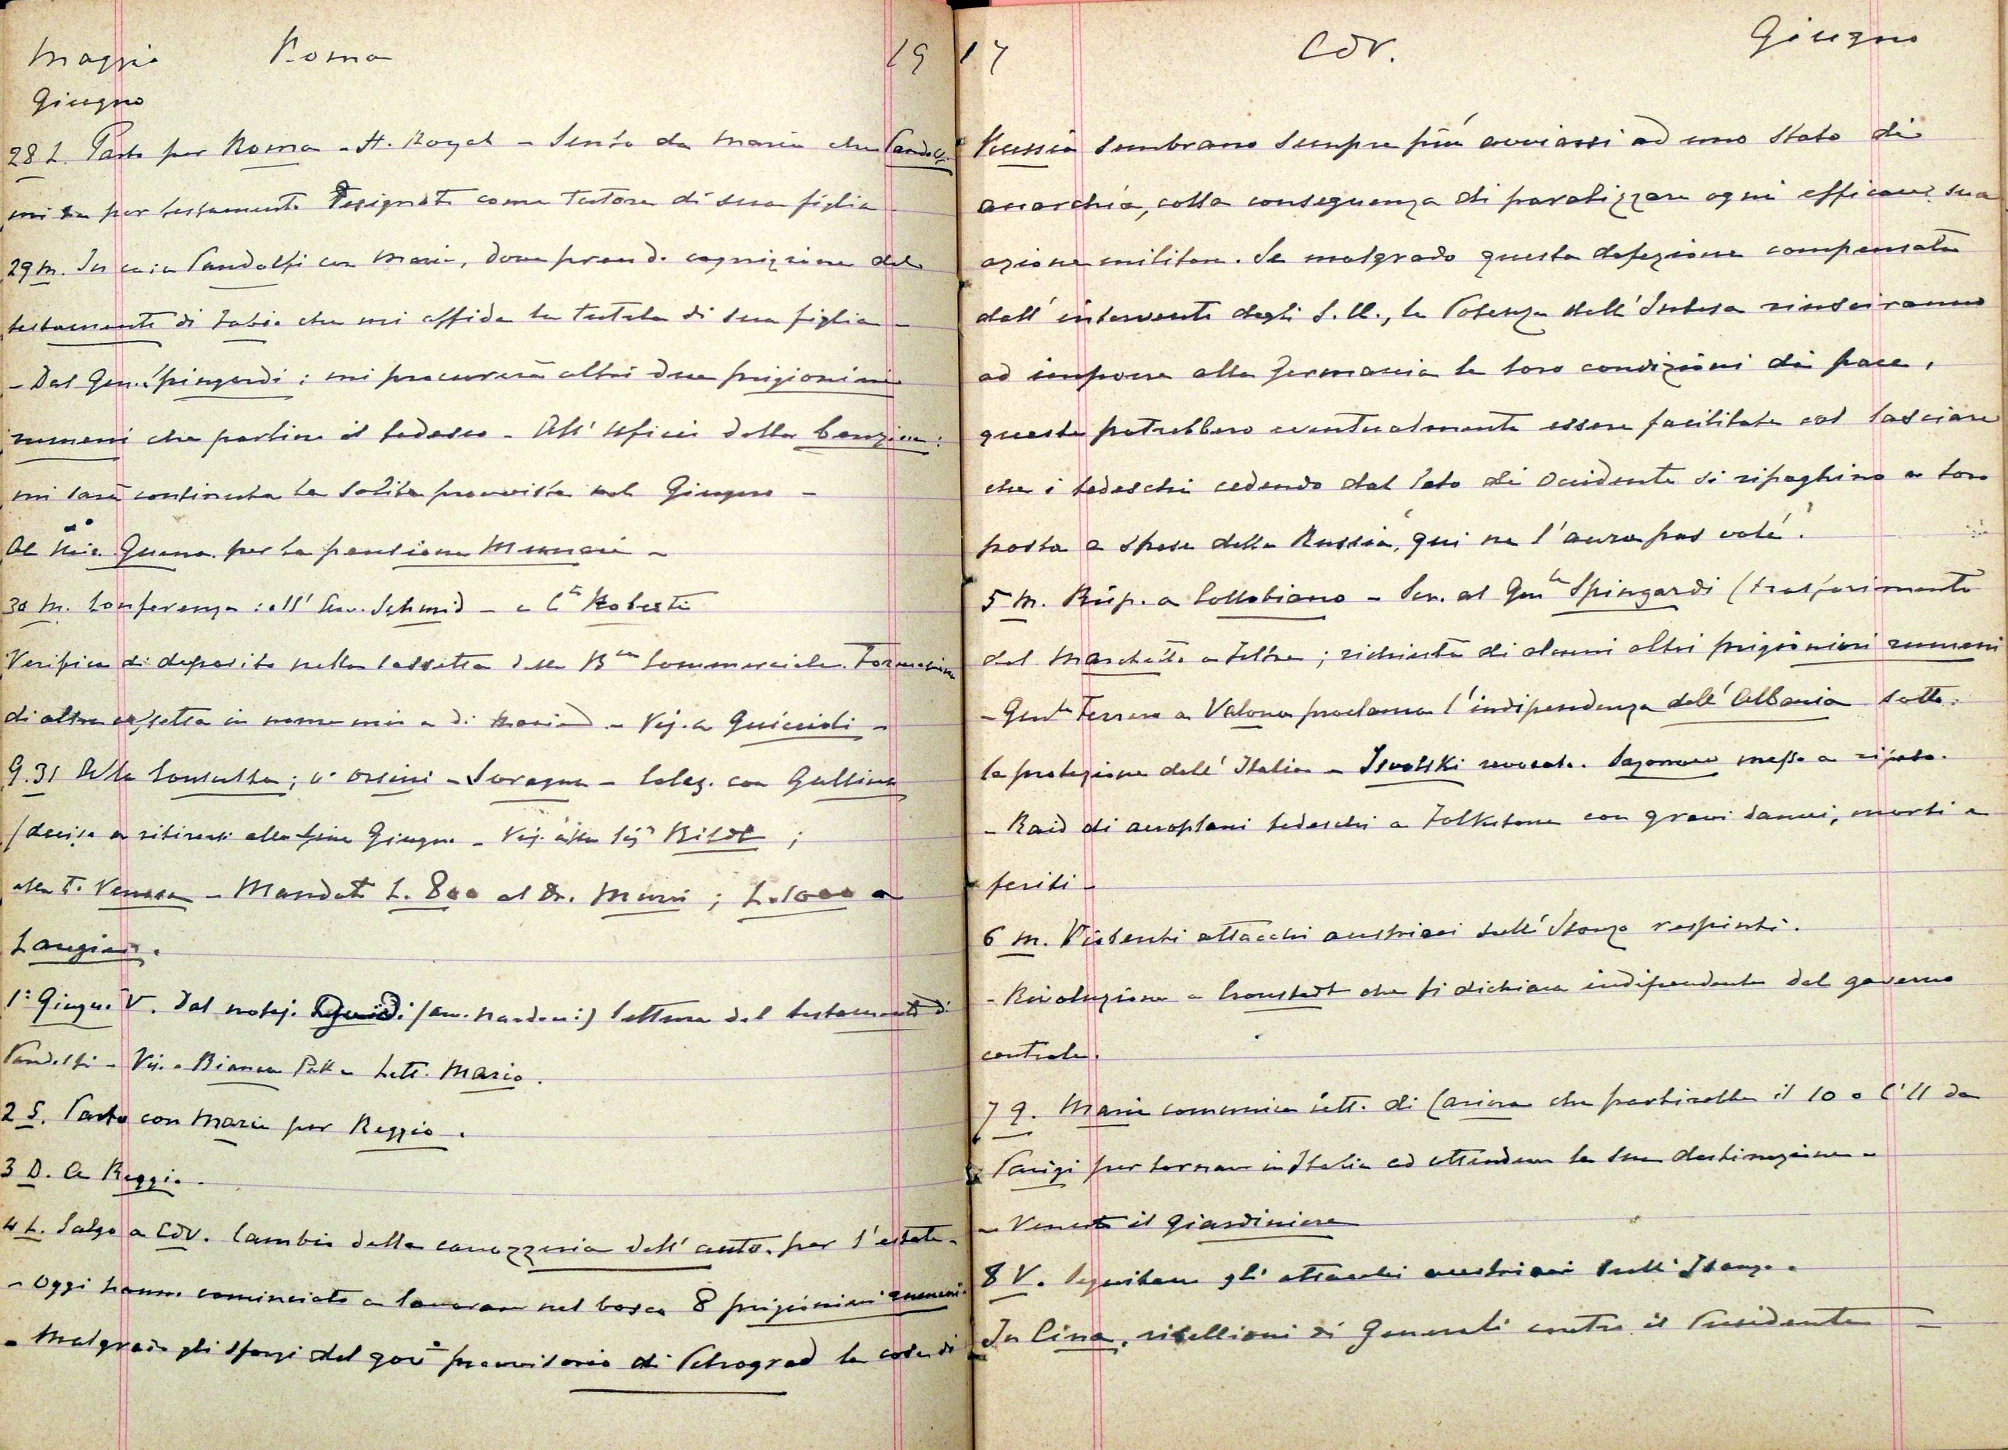 Maggio Roma 19
Giugno
28 L. Parto per Roma - H. Royal - Sento da Maria che Pandolfi
mi ha per testamento designato come tutore di sua figlia -
29 M. In casa Pandolfi con Maria, dove prendo cognizione del
testamento di Fabio che mi affida la tutela di sua figlia -
- Dal Gen. Spingardi: mi procurerà altri due prigionieri
rumeni che parlino il tedesco - All'Uficio della benzina:
mi sarà continuata la solita provvista nel Giugno -
Al Mio Guerra per la pensione Muncii -
30 M. Conferenza: all' Avv. Schmid - e Cte Roberti
Verifica di deposito nella cassetta della Bca Commerciale. Formazione
di altra cassetta in nome mio e di Maria - Vis. a Guiccioli -
G. 31 Alla Consulta; Orsini - Soragna - Colaz. con Gallina
(deciso a ritirarsi alla fine Giugno - Vis. alla Sigra Bildt;
alla T. Venosa - Mandato L. 800 al Dr. Murri; L. 1000 a
Langion.
1° Giugno V. Dal notaj. (avv. Nardoni) lettura del testamento di
Pandolfi - Vis. a Bianca - Lett. Mario.
2 S. Parto con Maria per Reggio.
3 D. A Reggio.
4 L. Salgo a Cdv. Cambio della carozzeria dell'auto. per l'estate -
- Oggi hanno cominciato a lavorare nel bosco 8 prigionieri rumeni.
- Malgrado gli sforzi del govo provvisorio di Petrograd le cose di
17 Cdv. Giugno
Russia sembrano sempre più avviarsi ad uno stato di
anarchia, colla conseguenza di paralizzare ogni efficace sua
azione militare. Se malgrado questa defezione compensata
dall'intervento degli S.U., le Potenze dell'Intesa riusciranno
ad imporre alla Germania le loro condizioni di pace,
queste potrebbero eventualmente essere facilitate col lasciare
che i tedeschi cedendo dal lato di occidente si ripaghino a loro
posta a spese della Russia, "qui ne l'aura pas volé".
5 M. Risp. a Collobiano - Scr. al Genle Spingardi (trasferimento
del Marchetti a Feltre; richiesta di alcuni altri prigionieri rumeni
- Genle Ferrero a Valona proclama l'indipendenza dell'Albania sotto
la protezione dell'Italia - Isvolski revocato. Sazonow messo a riposo.
- Raid di aeroplani tedeschi a Folkstone con gravi danni, morti e
feriti -
6 M. Violenti attacchi austriaci sull'Isonzo respinti.
- Rivoluzione a Cronstadt che si dichiara indipendente dal governo
centrale.
7 G. Maria comunica lett. di Carina che partirebbe il 10 o l'11 da
Parigi per tornare in Italia ad attendere la sua destinazione -
- Venuto il giardiniere
8 V. Seguitano gli attacchi austriaci sull'Isonzo.
In Cina, ribellioni di Generali contro il Presidente -